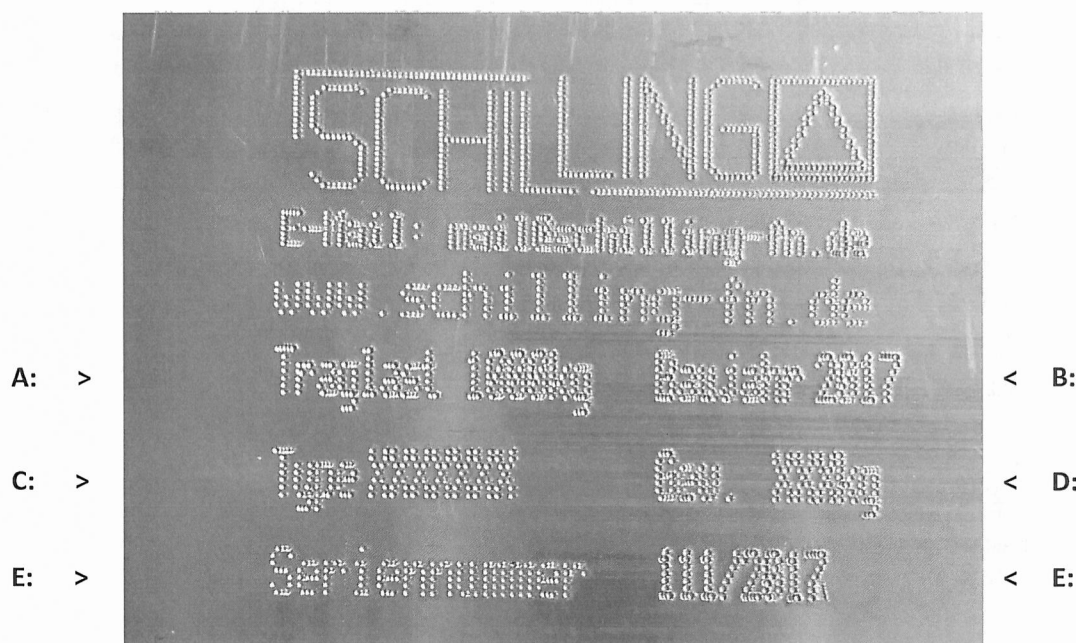 SCHILLING
E-Mail: mail@schilling-fn.de
www.schilling-fn.de
A: > Traglast 1000kg Baujahr 2017 < B:
C: > Type XXXXXXX Gew. XXXkg < D:
E: > Seriennummer 111/2017 < E: